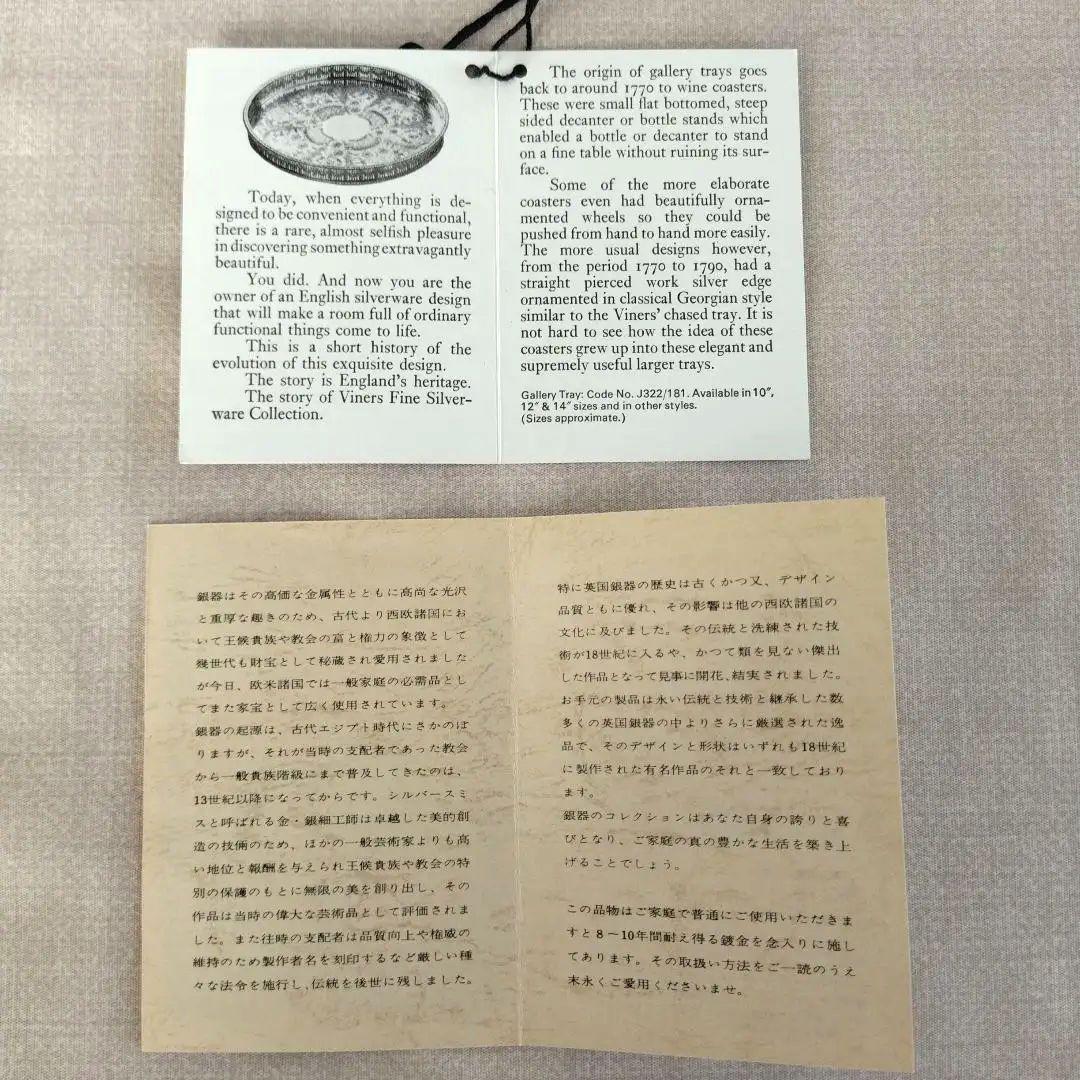 Today, when everything is de-
signed to be convenient and functional,
there is a rare, almost selfish pleasure
in discovering something extravagantly
beautiful.
You did. And now you are the
owner of an English silverware design
that will make a room full of ordinary
functional things come to life.
This is a short history of the
evolution of this exquisite design.
The story is England's heritage.
The story of Viners Fine Silver-
ware Collection.
The origin of gallery trays goes
back to around 1770 to wine coasters.
These were small flat bottomed, steep
sided decanter or bottle stands which
enabled a bottle or decanter to stand
on a fine table without ruining its sur-
face.
Some of the more elaborate
coasters even had beautifully orna-
mented wheels so they could be
pushed from hand to hand more easily.
The more usual designs however,
from the period 1770 to 1790, had a
straight pierced work silver edge
ornamented in classical Georgian style
similar to the Viners' chased tray. It is
not hard to see how the idea of these
coasters grew up into these elegant and
supremely useful larger trays.
Gallery Tray: Code No. J322/181. Available in 10″,
12″ & 14″ sizes and in other styles.
(Sizes approximate.)
銀器はその高価な金属性とともに高尚な光沢
と重厚な趣きのため、古代より西欧諸国にお
いて王候貴族や教会の富と権力の象徴として
幾世代も財宝として秘蔵され愛用されました
が今日、欧米諸国では一般家庭の必需品とし
てまた家宝として広く使用されています。
銀器の起源は、古代エジプト時代にさかのぼ
りますが、それが当時の支配者であった教会
から一般貴族階級にまで普及してきたのは、
13世紀以降になってからです。シルバースミ
スと呼ばれる金・銀細工師は卓越した美的創
造の技倆のため、ほかの一般芸術家よりも高
い地位と報酬を与えられ王候貴族や教会の特
別の保護のもとに無限の美を創り出し、その
作品は当時の偉大な芸術品として評価されま
した。また往時の支配者は品質向上や権威の
維持のため製作者名を刻印するなど厳しい種
々な法令を施行し、伝統を後世に残しました。
特に英国銀器の歴史は古くかつ又、デザイン
品質ともに優れ、その影響は他の西欧諸国の
文化に及びました。その伝統と洗練された技
術が18世紀に入るや、かつて類を見ない傑出
した作品となって見事に開花、結実されました。
お手元の製品は永い伝統と技術と継承した数
多くの英国銀器の中よりさらに厳選された逸
品で、そのデザインと形状はいずれも18世紀
に製作された有名作品のそれと一致しており
ます。
銀器のコレクションはあなた自身の誇りと喜
びとなり、ご家庭の真の豊かな生活を築き上
げることでしょう。
この品物はご家庭で普通にご使用いただきま
すと8〜10年間耐え得る鍍金を念入りに施し
てあります。その取扱い方法をご一読のうえ
末永くご愛用くださいませ。